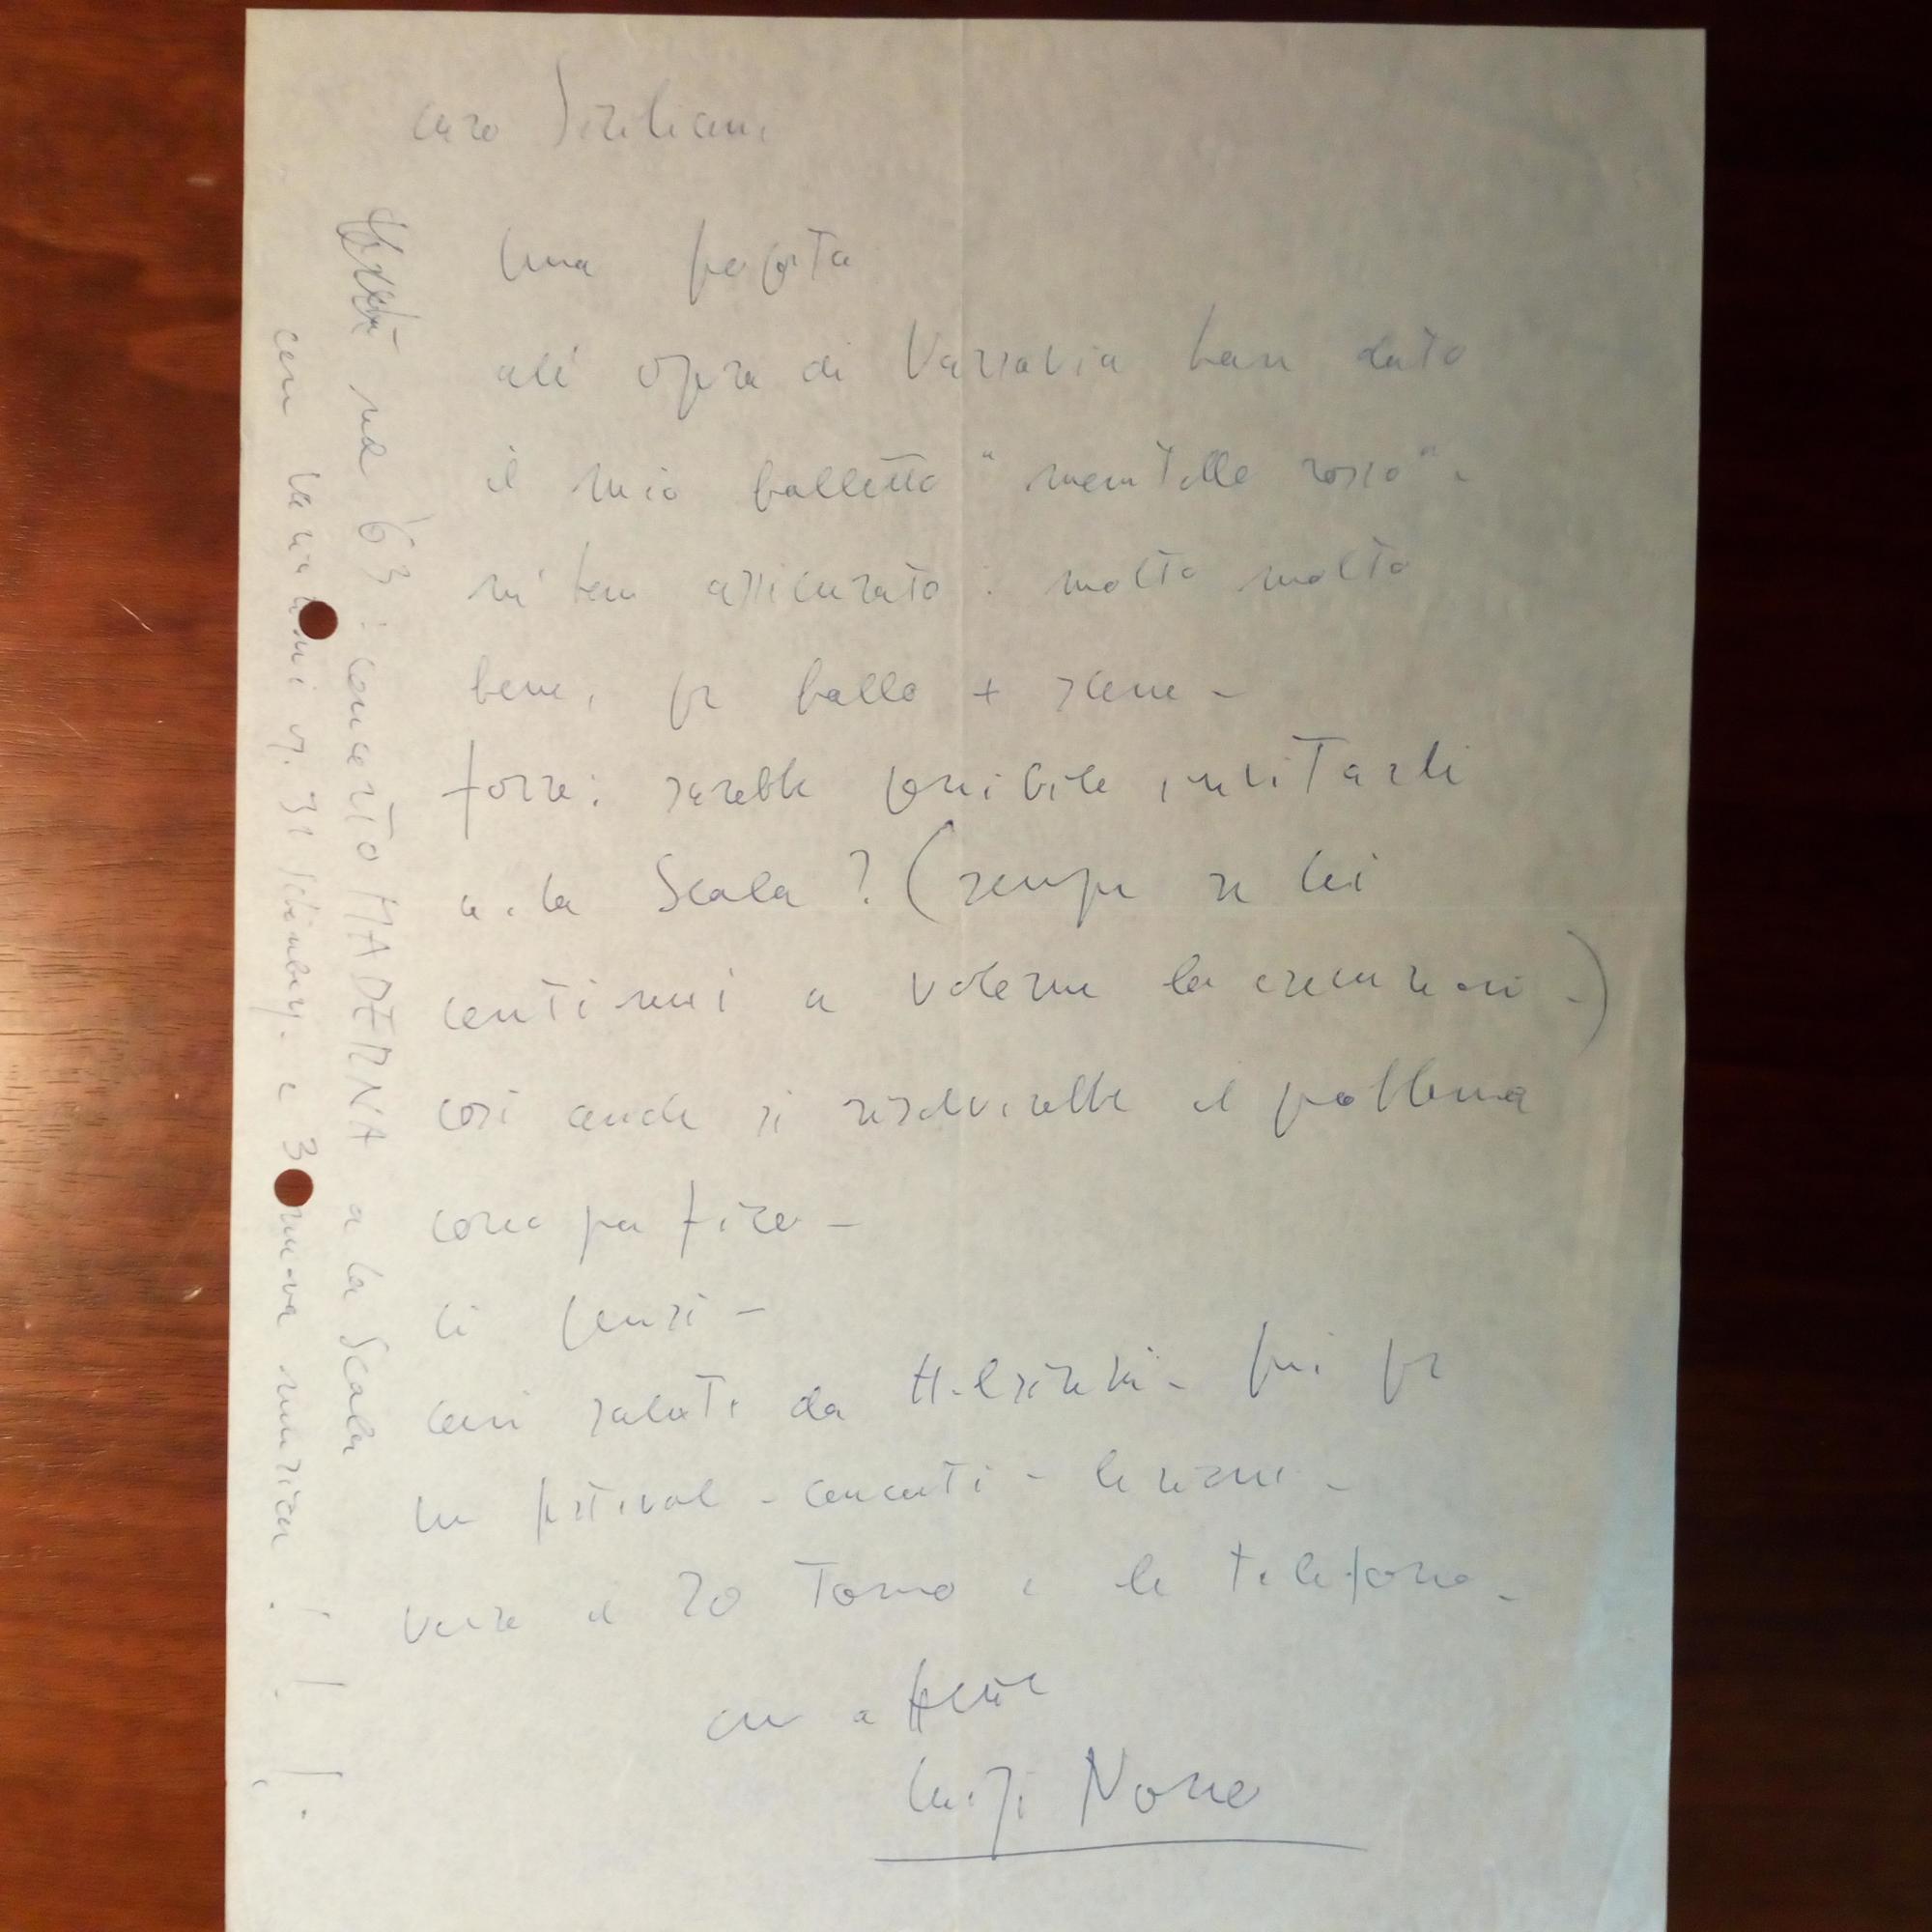 caro Siciliani
una proposta
all'opera di Varsavia han dato
il mio balletto "mantello rosso".
mi han assicurato: molto molto
bene, per ballo + scene –
forse: sarebbe possibile invitarli
a la Scala? (sempre se lei
continui a volerne la esecuzione –)
così anche si risolverebbe il problema
coreografico –
ci pensi –
cari saluti da Helsinki – qui per
un festival – concerti – lezioni –
verso il 20 torno e le telefono –
con a
Luigi Nono
nel '63: concerto MADERNA a la Scala
con variazioni op. 31 Schönberg – e 3 nuova musica !!!